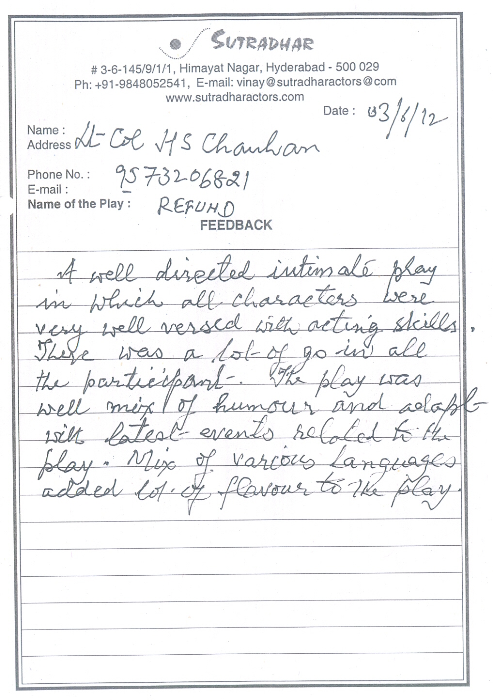 SUTRADHAR
# 3-6-145/9/1/1, Himayat Nagar, Hyderabad - 500 029
Ph: +91-9848052541, E-mail: vinay@sutradharactors@com
www.sutradharactors.com
Date : 03/6/12
Name : 
Address Lt-Col HS Chauhan
Phone No. : 9573206821
E-mail :
Name of the Play : REFUND
FEEDBACK
A well directed intimate play
in which all characters were
very well versed with acting skills.
There was a lot of go in all
the participant. The play was
well mix of humour and adapt
with latest events related to the
play. Mix of various languages
added lot of flavour to the play.